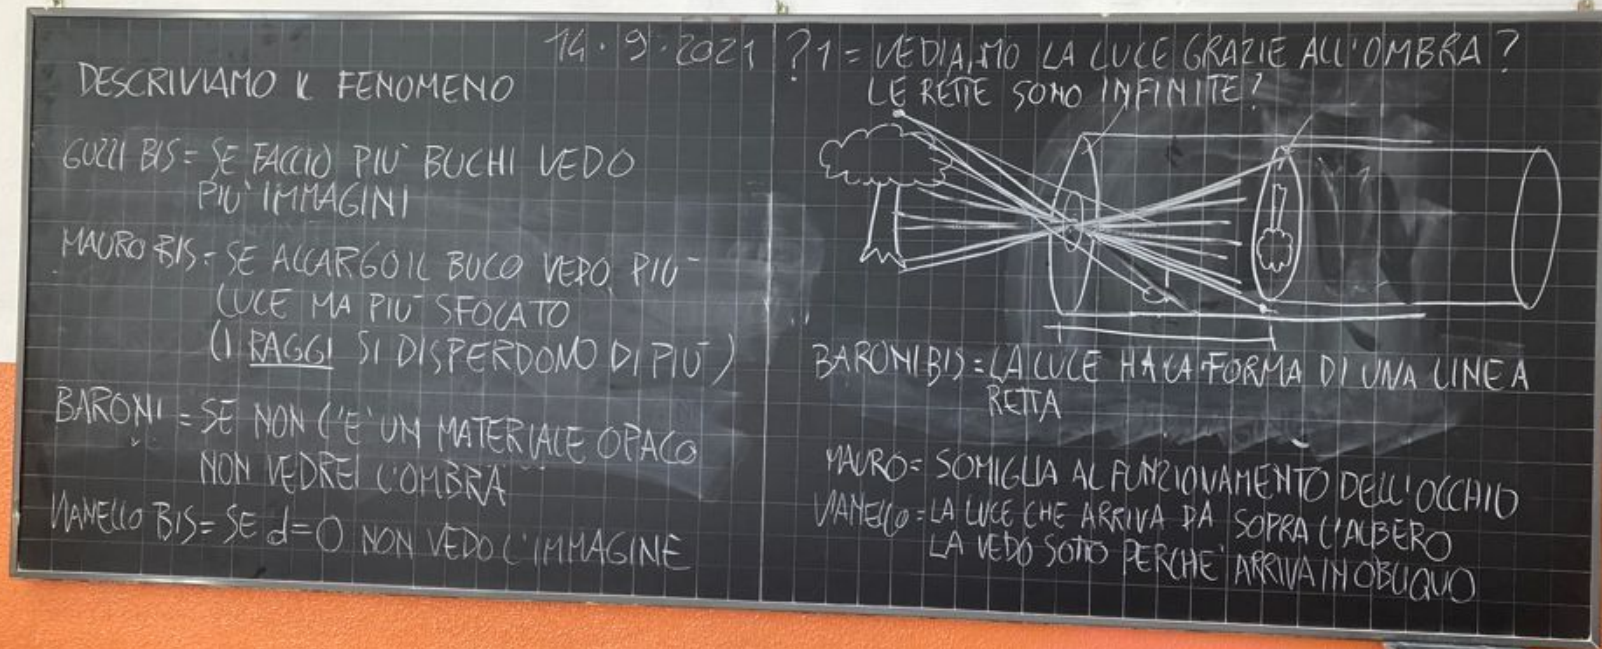 14.9.2021
DESCRIVIAMO IL FENOMENO
GUZZI BIS = SE FACCIO PIU' BUCHI VEDO
PIU' IMMAGINI
MAURO BIS = SE ALLARGO IL BUCO VEDO PIU'
LUCE MA PIU' SFOCATO
(I RAGGI SI DISPERDONO DI PIU')
BARONI = SE NON C'E' UN MATERIALE OPACO
NON VEDREI L'OMBRA
VIANELLO BIS = SE d=0 NON VEDO L'IMMAGINE
?1 = VEDIAMO LA LUCE GRAZIE ALL'OMBRA?
LE RETTE SONO INFINITE?
BARONI BIS = LA LUCE HA LA FORMA DI UNA LINEA
RETTA
MAURO = SOMIGLIA AL FUNZIONAMENTO DELL'OCCHIO
VIANELLO = LA LUCE CHE ARRIVA DA SOPRA L'ALBERO
LA VEDO SOTTO PERCHE' ARRIVA IN OBLIQUO